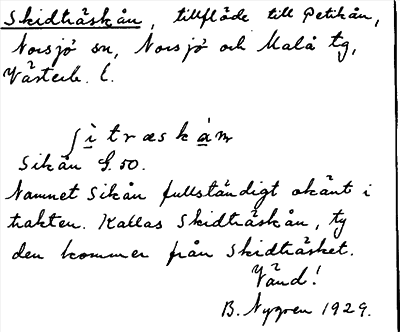 Skidträskån, tillflöde till Petikån,
Norsjö sn, Norsjö och Malå tg,
Västerb. l.
ʃìtræskám
Sikån G.50.
Namnet Sikån fullständigt okänt i
trakten. Kallas Skidträskån, ty
den kommer från Skidträsket.
Vänd!
B. Nygren 1929.